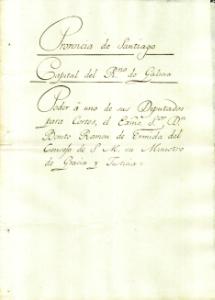 Provincia de Santiago
Capital del R.no de Galicia
Poder à uno de sus Diputados
para Cortes, el Exmo. S.or D.n
Benito Ramon de Ermida del
Consejo de S. M. su Ministro
de Gracia y Justicia